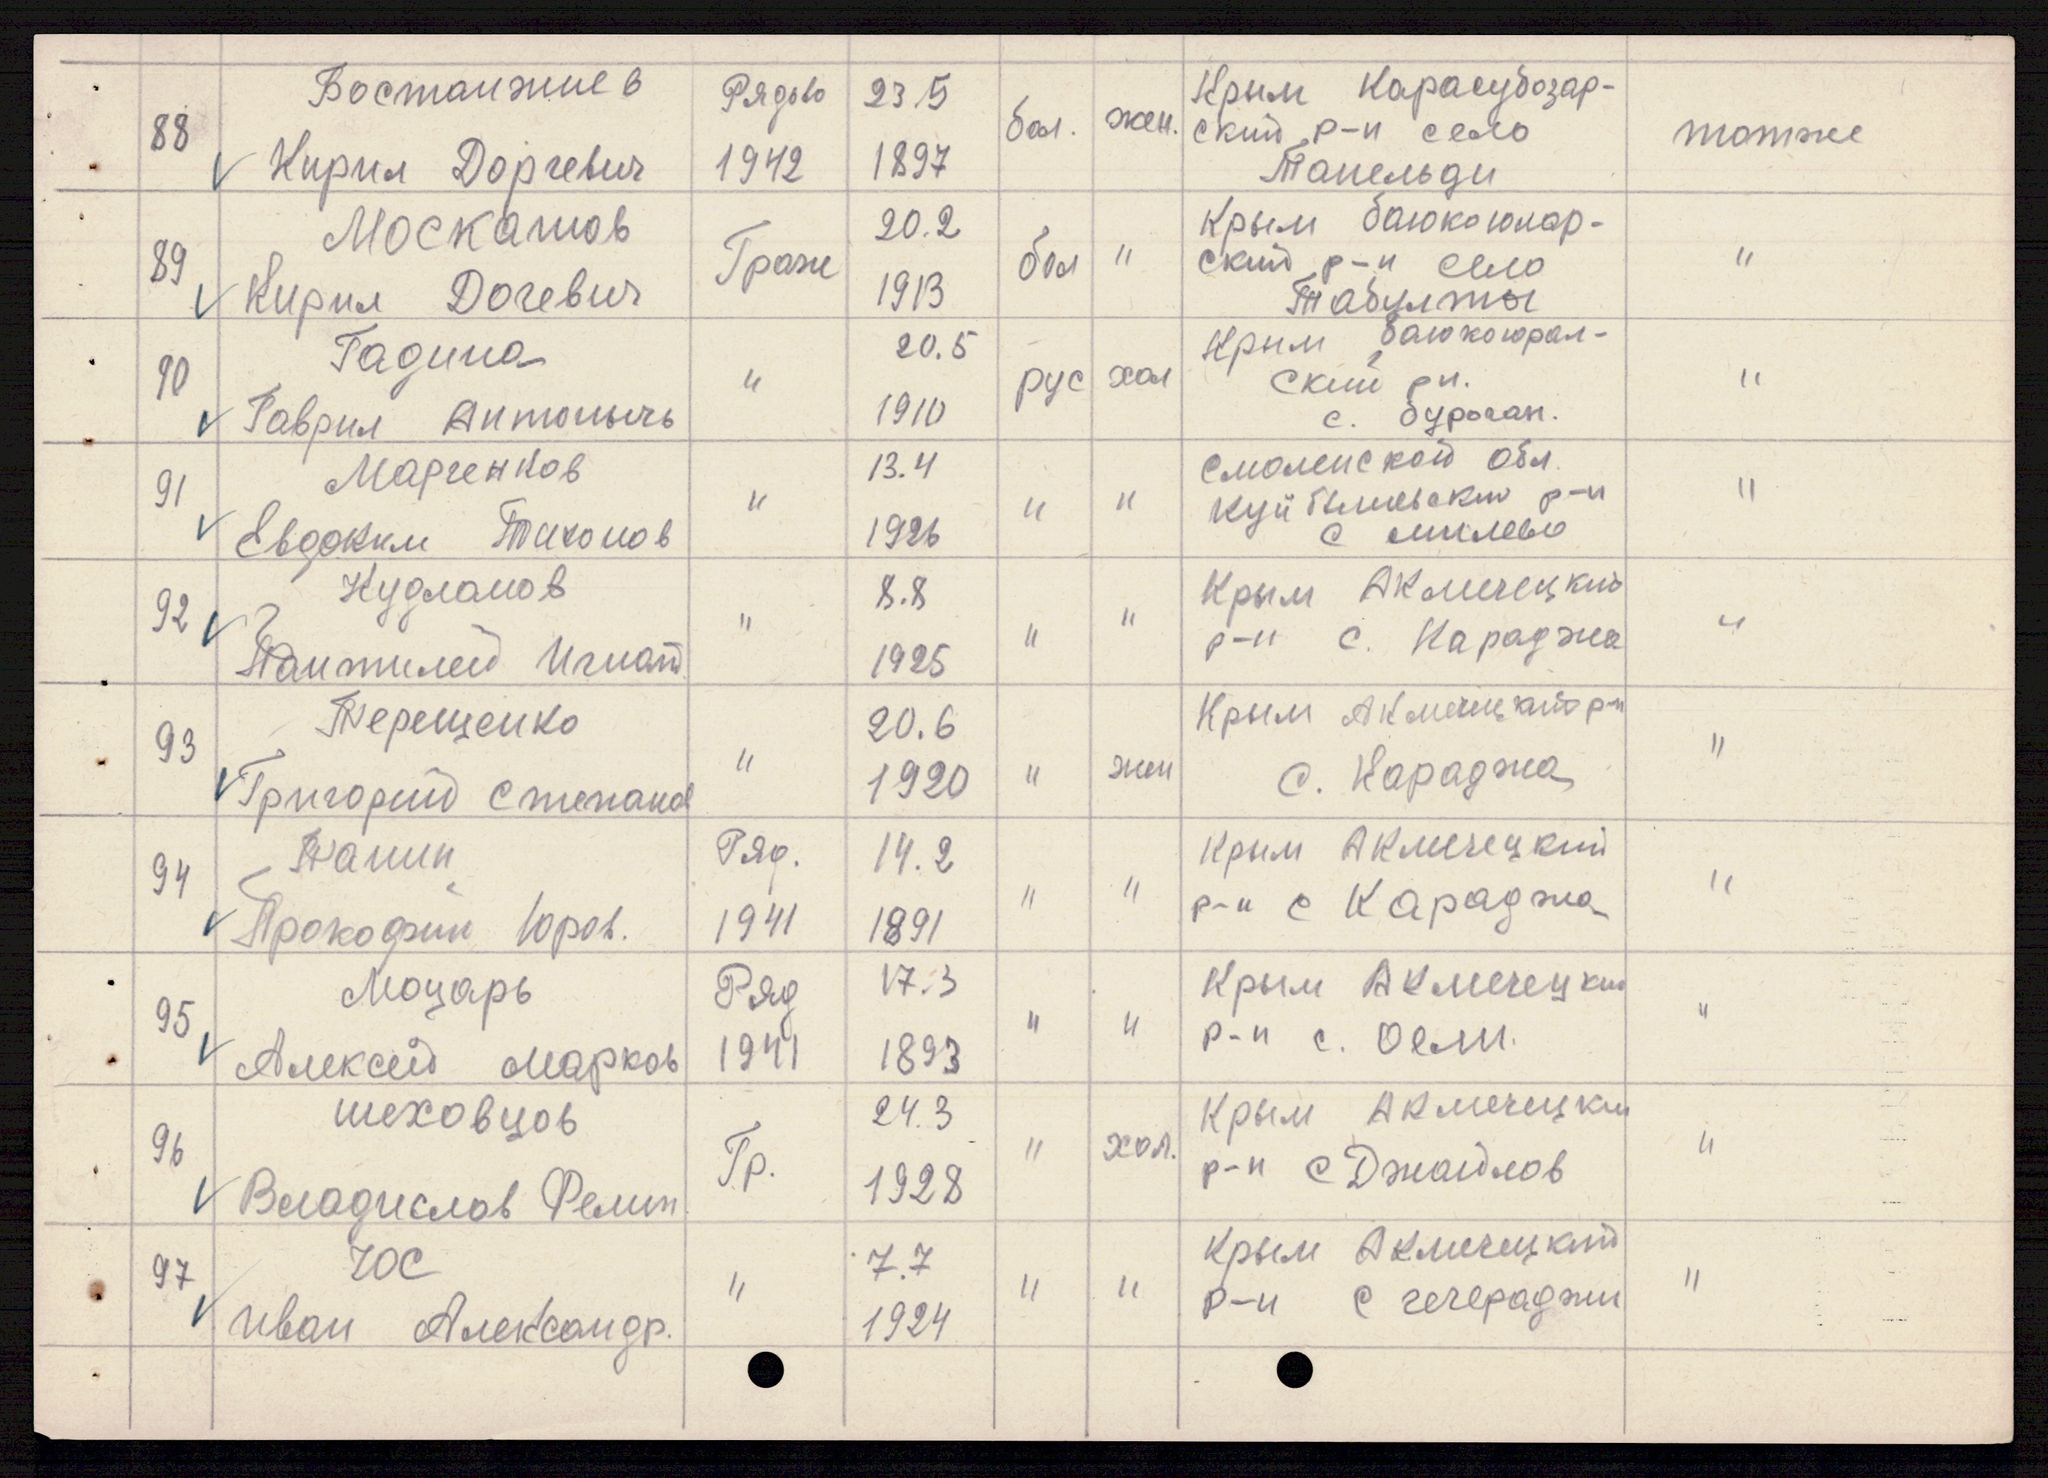 88 Востанжиев Рядово 23.5 бол. жен. Крым Карасубозар-
ский р-н село тотже
Кирил Доргевич 1942 1897 Танельди
89 Москатов Граж 20.2 бол " Крым баюкоюлар-
ский р-н село "
Кирил Догевич 1913 Табулжы
90 Гадина " 20.5 рус хол Крым баюкоюрал-
ский рн. "
Гаврил Антонычь 1910 с. бурачан.
91 Марченков " 13.4 " " Смоленской обл.
Куйбышевский р-н "
Евдоким Тихонов 1926 с милево
92 Кудланов " 8.8 " " Крым Акмечецкий "
Пантилей Игнат 1925 р-н с. Караджа
93 Терещенко " 20.6 " жен Крым Акмечецкий р-н "
Григорий степанов 1920 с. Караджа
94 Панин Ряд. 14.2 " " Крым Акмечецкий "
Прокофий Юров. 1941 1891 р-н с Караджа
95 Моцарь Ряд 17.3 " " Крым Акмечецкий "
Алексей марков 1941 1893 р-н с. Оели.
96 шеховцов Гр. 24.3 " хол. Крым Акмечецкий "
Владислав Фелип 1928 р-н с Джайлов
97 ЧОС " 7.7 " " Крым Акмечецкий "
иван Александр. 1924 р-н с чечераджи